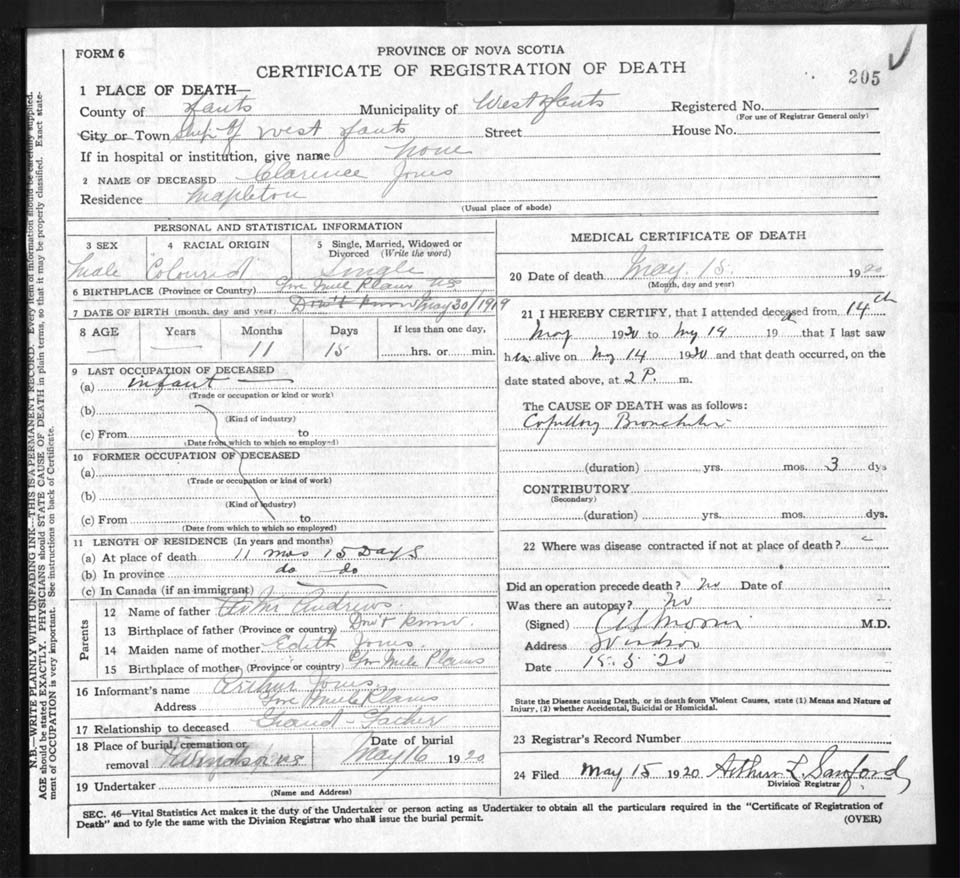 FORM 6
PROVINCE OF NOVA SCOTIA
CERTIFICATE OF REGISTRATION OF DEATH
205
1 PLACE OF DEATH—
County of Hants Municipality of West Hants Registered No.
(For use of Registrar General only)
City or Town Ship of West Hants Street House No.
If in hospital or institution, give name None
2 NAME OF DECEASED Clarence Jones
Residence Mapleton
(Usual place of abode)
PERSONAL AND STATISTICAL INFORMATION
3 SEX 4 RACIAL ORIGIN 5 Single, Married, Widowed or Divorced (Write the word)
Male Coloured Single
6 BIRTHPLACE (Province or Country) Five Mile Plains NS
7 DATE OF BIRTH (month, day and year) Don't know May 30/1919
8 AGE Years Months Days If less than one day,
— — 11 15 hrs. or min.
9 LAST OCCUPATION OF DECEASED
(a) infant —
(Trade or occupation or kind or work)
(b)
(Kind of industry)
(c) From to
(Date from which to which so employed)
10 FORMER OCCUPATION OF DECEASED
(a)
(Trade or occupation or kind of work)
(b)
(Kind of industry)
(c) From to
(Date from which to which so employed)
11 LENGTH OF RESIDENCE (In years and months)
(a) At place of death 11 mos 15 Days
(b) In province do do
(c) In Canada (if an immigrant)
Parents
12 Name of father Andrews
13 Birthplace of father (Province or country) Don't know.
14 Maiden name of mother Edith Jones.
15 Birthplace of mother (Province or country) Five Mile Plains
16 Informant's name Arthur Jones
Address Five Mile Plains
17 Relationship to deceased Grand-Father
18 Place of burial, cremation or removal Windsor NS
Date of burial May 16 1920
19 Undertaker
(Name and Address)
MEDICAL CERTIFICATE OF DEATH
20 Date of death May. 15. 1920
(Month, day and year)
21 I HEREBY CERTIFY, that I attended deceased from 14th
May 1920 to My 14 19 that I last saw
him alive on My 14 1920 and that death occurred, on the
date stated above, at 2 P. m.
The CAUSE OF DEATH was as follows:
Capillary Bronchitis
(duration) yrs. mos. 3 dys
CONTRIBUTORY
(Secondary)
(duration) yrs. mos. dys.
22 Where was disease contracted if not at place of death?
Did an operation precede death? No Date of
Was there an autopsy? No
(Signed) M.D.
Address Windsor
Date 15.5.20
State the Disease causing Death, or in death from Violent Causes, state (1) Means and Nature of
Injury, (2) whether Accidental, Suicidal or Homicidal.
23 Registrar's Record Number
24 Filed May 15 1920 Arthur L. Sanford
Division Registrar
SEC. 46—Vital Statistics Act makes it the duty of the Undertaker or person acting as Undertaker to obtain all the particulars required in the "Certificate of Registration of
Death" and to fyle the same with the Division Registrar who shall issue the burial permit.
(OVER)
N.B.—WRITE PLAINLY WITH UNFADING INK—THIS IS A PERMANENT RECORD. Every item of information should be carefully supplied.
AGE should be stated EXACTLY. PHYSICIANS should STATE CAUSE OF DEATH in plain terms, so that it may be properly classified. Exact state-
ment of OCCUPATION is very important. See instructions on back of Certificate.